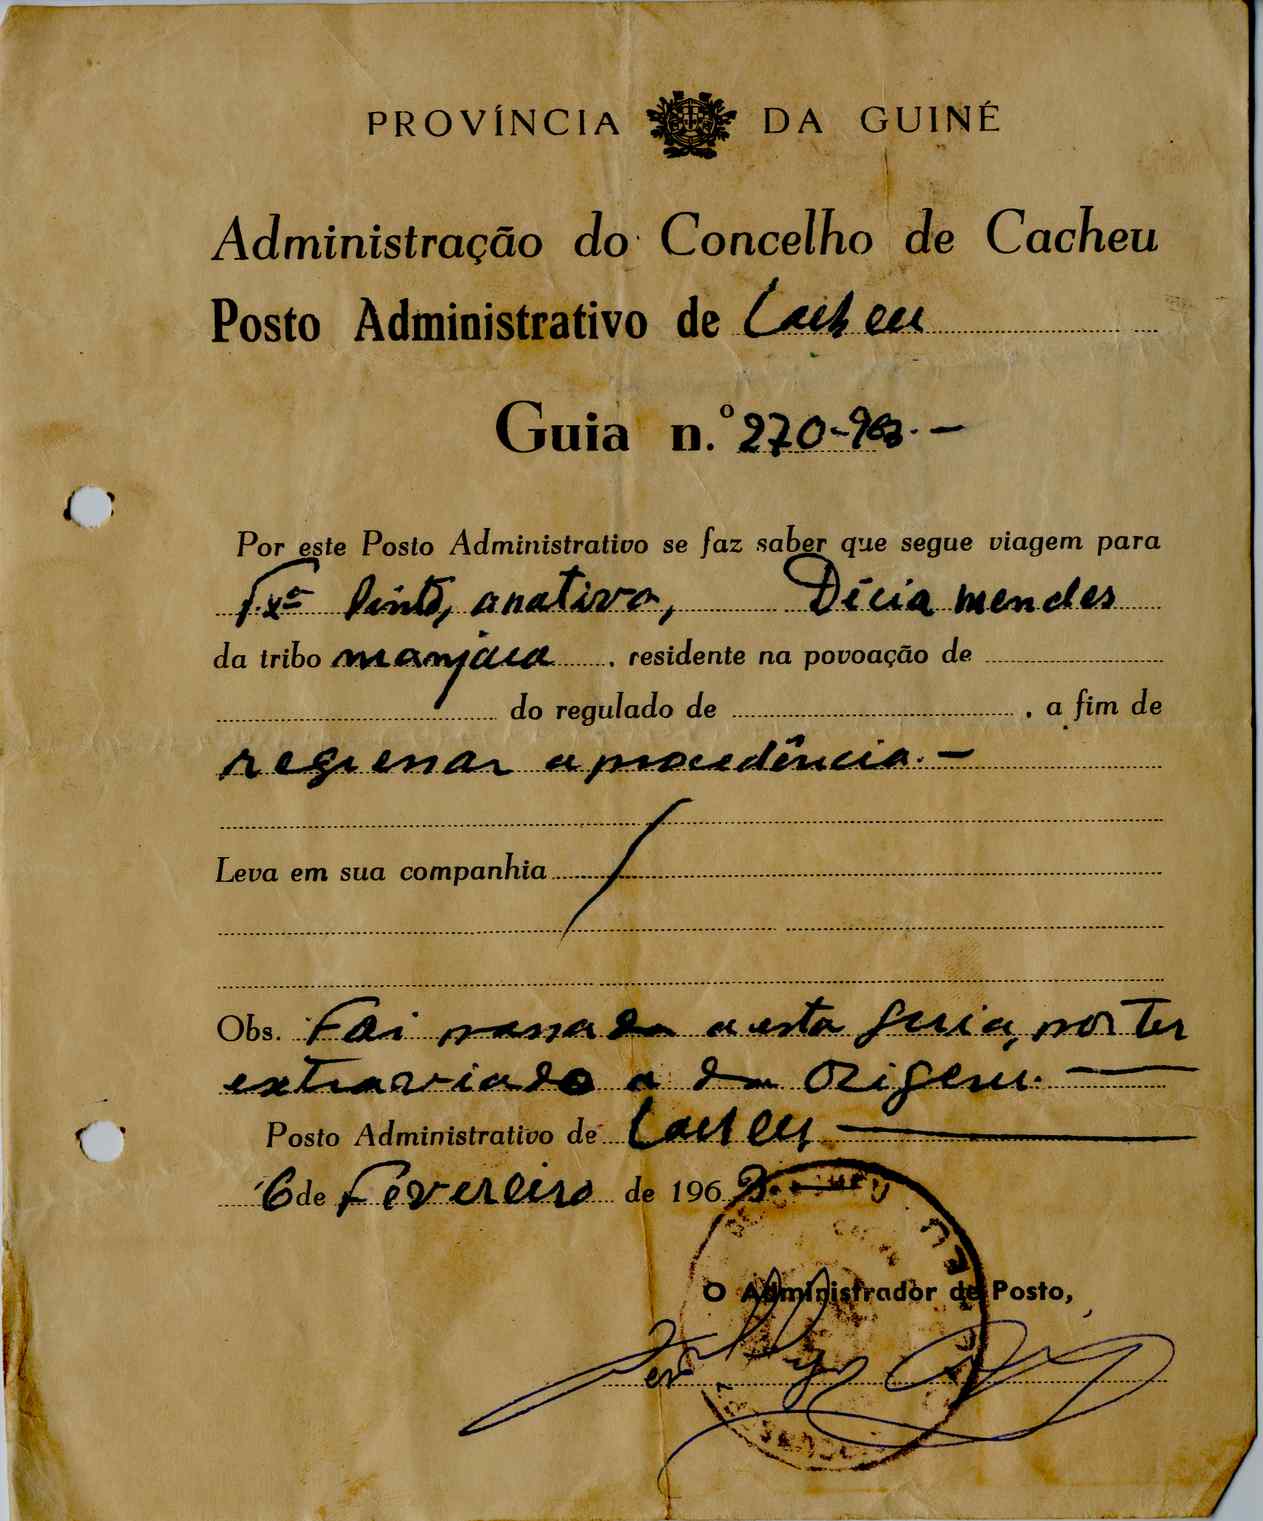 PROVÍNCIA DA GUINÉ
Administração do Concelho de Cacheu
Posto Administrativo de Cacheu
Guia n.º 270-963.-
Por este Posto Administrativo se faz saber que segue viagem para
Pinto, a nativa, Décia mendes
da tribo manjaca, residente na povoação de
do regulado de , a fim de
regressar a procedência.-
Leva em sua companhia
Obs. Foi passada a esta guia, por ter
extraviado a da Origem.-
Posto Administrativo de Cacheu
6 de Fevereiro de 1963.
O Administrador de Posto,